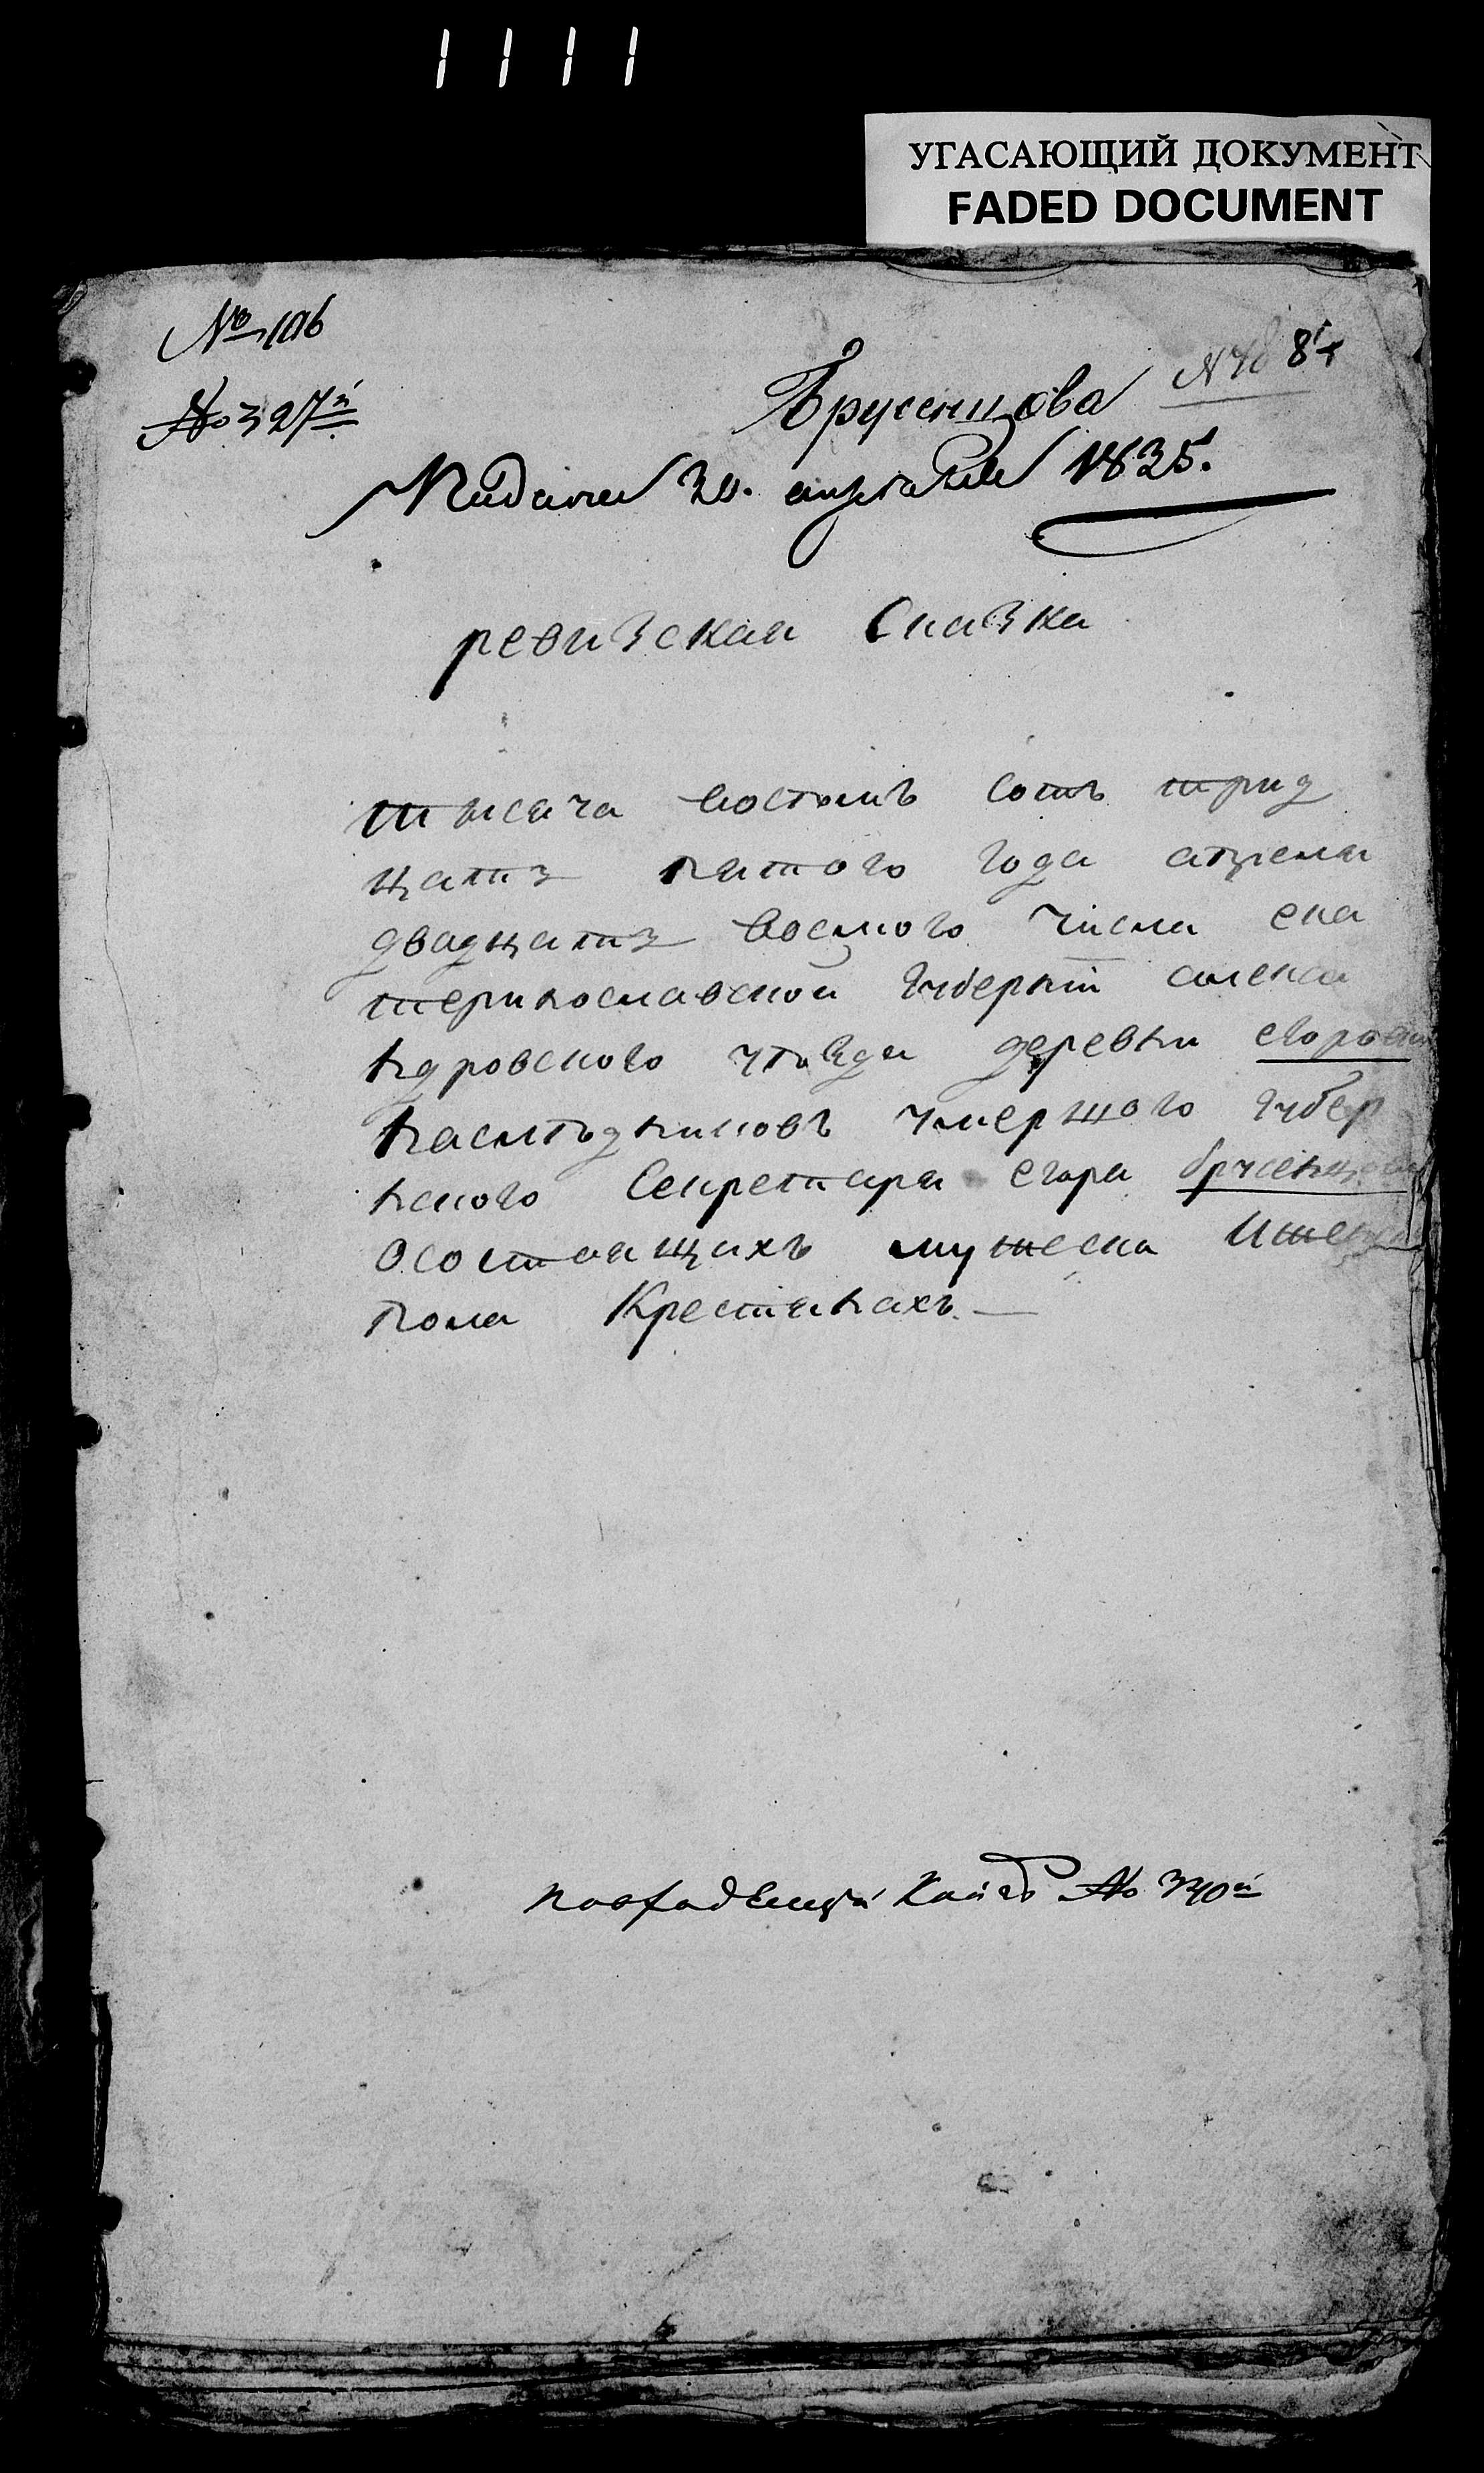 1111
УГАСАЮЩИЙ ДОКУМЕНТ
FADED DOCUMENT
№ 106
№ 327й
84
Брусенцова
Подана 30. апреля 1835.
ревизская Сказка
тысяча востомъ сотъ трид
цатъ пятого года апреля
двадцатъ восмого числа ека
теринославской губернїи алекса
ндровского уѣзда деревни егоровки
наслѣдниковъ умершого губер
нского Секретаря егора брусенцова
осостоящихъ мужеска Иженска
пола Крестянахъ.
№ 340й